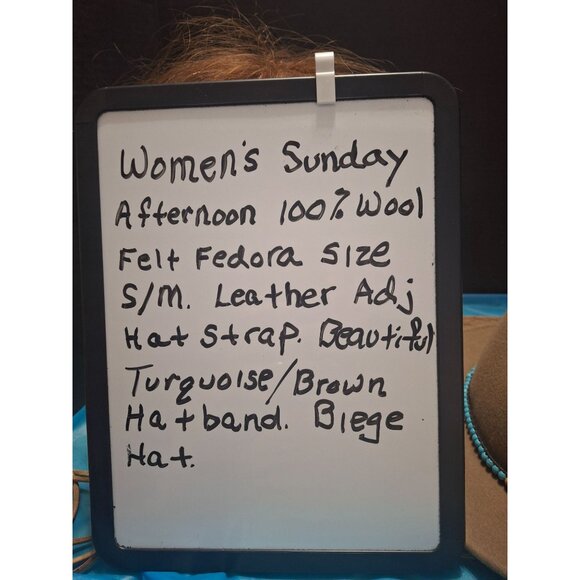 Women's Sunday
Afternoon 100% Wool
Felt Fedora Size
S/M. Leather Adj
Hat Strap. Beautiful
Turquoise/Brown
Hatband. Biege
Hat.